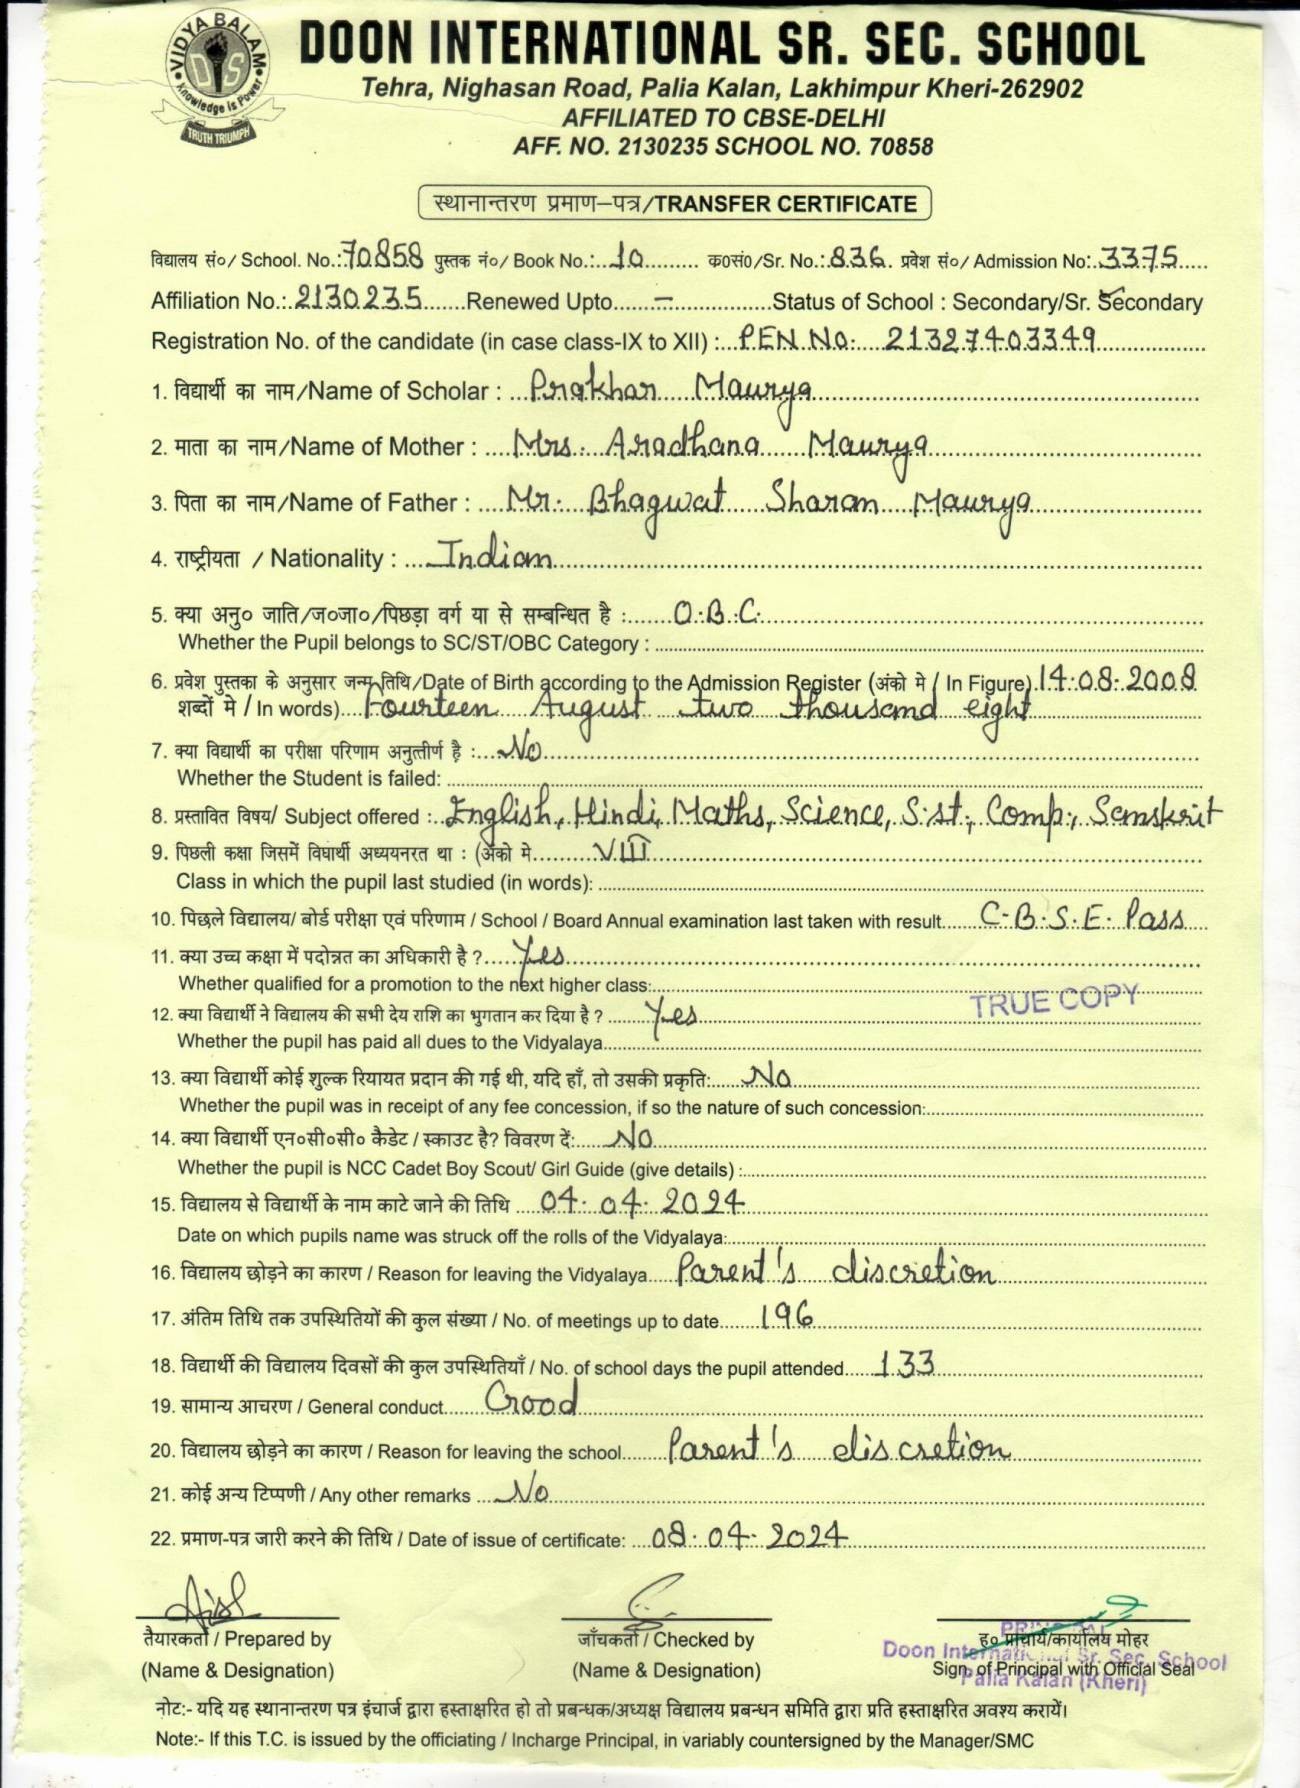 VIDYA BALAM
DIS
Knowledge is Power
TRUTH TRIUMPH
DOON INTERNATIONAL SR. SEC. SCHOOL
Tehra, Nighasan Road, Palia Kalan, Lakhimpur Kheri-262902
AFFILIATED TO CBSE-DELHI
AFF. NO. 2130235 SCHOOL NO. 70858
स्थानान्तरण प्रमाण–पत्र/TRANSFER CERTIFICATE
विद्यालय सं०/ School. No.: 70858 पुस्तक नं०/ Book No.: 10 क0सं0/Sr. No.: 836. प्रवेश सं०/ Admission No: 3375
Affiliation No.: 2130235 Renewed Upto – Status of School : Secondary/Sr. Secondary
Registration No. of the candidate (in case class-IX to XII) : PEN No. 21327403349
1. विद्यार्थी का नाम/Name of Scholar : Prakhar Maurya
2. माता का नाम/Name of Mother : Mrs. Aradhana Maurya
3. पिता का नाम/Name of Father : Mr. Bhagwat Sharan Maurya
4. राष्ट्रीयता / Nationality : Indian
5. क्या अनु० जाति/ज०जा०/पिछड़ा वर्ग या से सम्बन्धित है : O.B.C.
Whether the Pupil belongs to SC/ST/OBC Category :
6. प्रवेश पुस्तका के अनुसार जन्म तिथि/Date of Birth according to the Admission Register (अंको मे / In Figure) 14.08.2008
शब्दों मे / In words) Fourteen August two thousand eight
7. क्या विद्यार्थी का परीक्षा परिणाम अनुत्तीर्ण है : No
Whether the Student is failed:
8. प्रस्तावित विषय/ Subject offered : English, Hindi, Maths, Science, S.st., Comp., Sanskrit
9. पिछली कक्षा जिसमें विघार्थी अध्ययनरत था : (अंको मे VIII
Class in which the pupil last studied (in words):
10. पिछले विद्यालय/ बोर्ड परीक्षा एवं परिणाम / School / Board Annual examination last taken with result C.B.S.E. Pass
11. क्या उच्च कक्षा में पदोन्नत का अधिकारी है ? Yes
Whether qualified for a promotion to the next higher class:
TRUE COPY
12. क्या विद्यार्थी ने विद्यालय की सभी देय राशि का भुगतान कर दिया है ? Yes
Whether the pupil has paid all dues to the Vidyalaya
13. क्या विद्यार्थी कोई शुल्क रियायत प्रदान की गई थी, यदि हाँ, तो उसकी प्रकृति: No
Whether the pupil was in receipt of any fee concession, if so the nature of such concession:
14. क्या विद्यार्थी एन०सी०सी० कैडेट / स्काउट है? विवरण दें: No
Whether the pupil is NCC Cadet Boy Scout/ Girl Guide (give details) :
15. विद्यालय से विद्यार्थी के नाम काटे जाने की तिथि 04.04.2024
Date on which pupils name was struck off the rolls of the Vidyalaya:
16. विद्यालय छोड़ने का कारण / Reason for leaving the Vidyalaya Parent's discretion
17. अंतिम तिथि तक उपस्थितियों की कुल संख्या / No. of meetings up to date 196
18. विद्यार्थी की विद्यालय दिवसों की कुल उपस्थितियाँ / No. of school days the pupil attended 133
19. सामान्य आचरण / General conduct Good
20. विद्यालय छोड़ने का कारण / Reason for leaving the school Parent's discretion
21. कोई अन्य टिप्पणी / Any other remarks No
22. प्रमाण-पत्र जारी करने की तिथि / Date of issue of certificate: 08.04.2024
PRINCIPAL
तैयारकर्ता / Prepared by जाँचकर्ता / Checked by ह० प्राचार्य/कार्यालय मोहर
Doon International Sr. Sec. School
(Name & Designation) (Name & Designation) Sign. of Principal with Official Seal
Palia Kalan (Kheri)
नोट:- यदि यह स्थानान्तरण पत्र इंचार्ज द्वारा हस्ताक्षरित हो तो प्रबन्धक/अध्यक्ष विद्यालय प्रबन्धन समिति द्वारा प्रति हस्ताक्षरित अवश्य करायें।
Note:- If this T.C. is issued by the officiating / Incharge Principal, in variably countersigned by the Manager/SMC